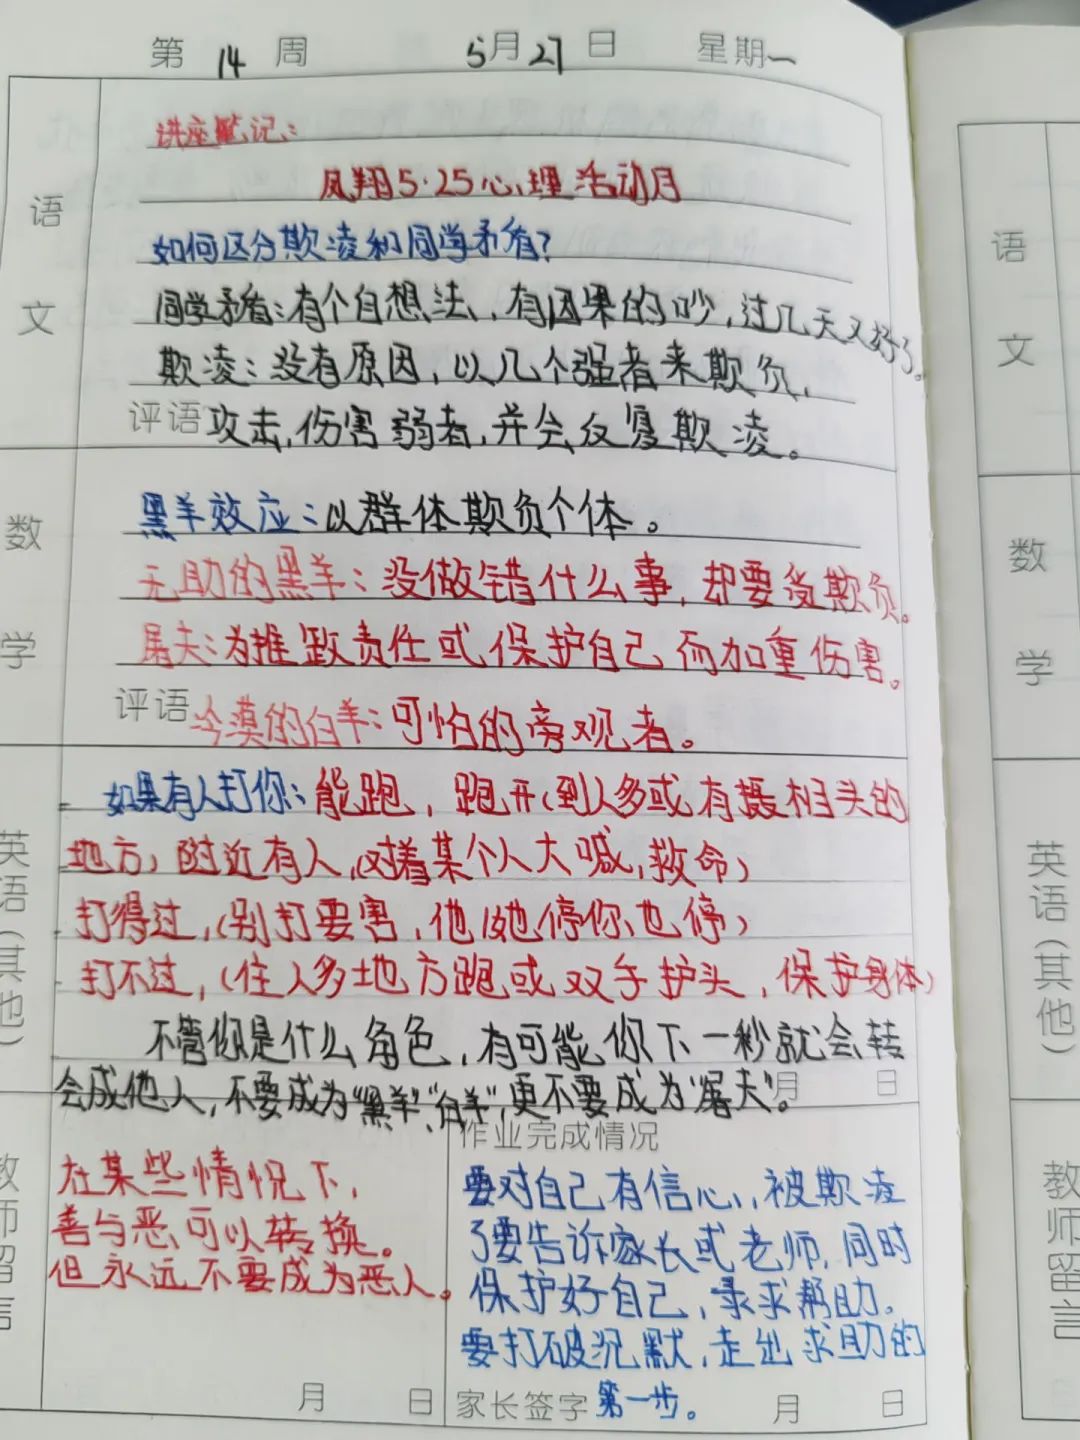 第 14 周 5月27日 星期一
讲座笔记：
凤翔5·25心理活动月
语文
如何区分欺凌和同学矛盾？
同学矛盾：有个自想法，有因果的吵，过几天又好了。
欺凌：没有原因，以几个强者来欺负，
评语 攻击，伤害弱者，并会反复欺凌。
数学
黑羊效应：以群体欺负个体。
无助的黑羊：没做错什么事，却要受欺负。
屠夫：为推卸责任或保护自己而加重伤害。
评语 冷漠的白羊：可怕的旁观者。
英语（其他）
如果有人打你：能跑，跑开（到人多或有摄相头的
地方，附近有人，（对着某个人大喊，救命）
打得过，（别打要害，他/她停你也停）
打不过，（往人多地方跑或双手护头，保护身体）
不管你是什么角色，有可能你下一秒就会转
月 日
会成他人，不要成为“黑羊”、“白羊”，更不要成为“屠夫”。
教师留言
在某些情况下，
善与恶可以转换。
但永远不要成为恶人。
月 日
作业完成情况
要对自己有信心，被欺凌
了要告诉家长或老师，同时
保护好自己，寻求帮助。
要打破沉默，走出求助的
家长签字 第一步。 月 日
语文
数学
英语（其他）
教师留言